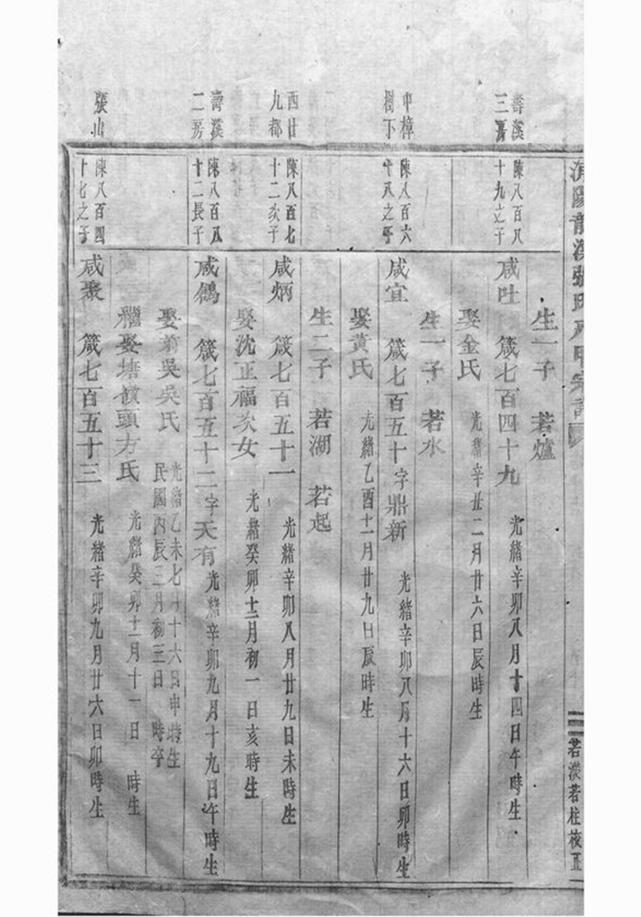 龍溪張氏
宗譜
生一子 若爐
壽溪
三房
陳八百八
十九之子
咸吐 箴七百四十九 光緒辛卯八月十四日午時生
娶金氏 光緒辛丑二月廿六日辰時生
生一子 若水
中樟
樹下
陳八百六
十八之子
咸宜 箴七百五十字鼎新 光緒辛卯八月十六日卯時生
娶黃氏 光緒乙酉十一月廿九日辰時生
生二子 若湖 若起
西廿
九都
陳八百七
十二次子
咸炳 箴七百五十一 光緒辛卯八月廿九日未時生
娶沈正福次女 光緒癸卯十二月初一日亥時生
壽溪
二房
陳八百八
十二長子
咸鶴 箴七百五十二字天有 光緒辛卯九月十九日午時生
娶前吳吳氏 光緒乙未七月十六日申時生
民國丙辰三月初三日 時卒
繼娶塘頭方氏 光緒癸卯十二月十一日 時生
張山
陳八百四
十七之子
咸聚 箴七百五十三 光緒辛卯九月廿六日卯時生
若漢若柱校正